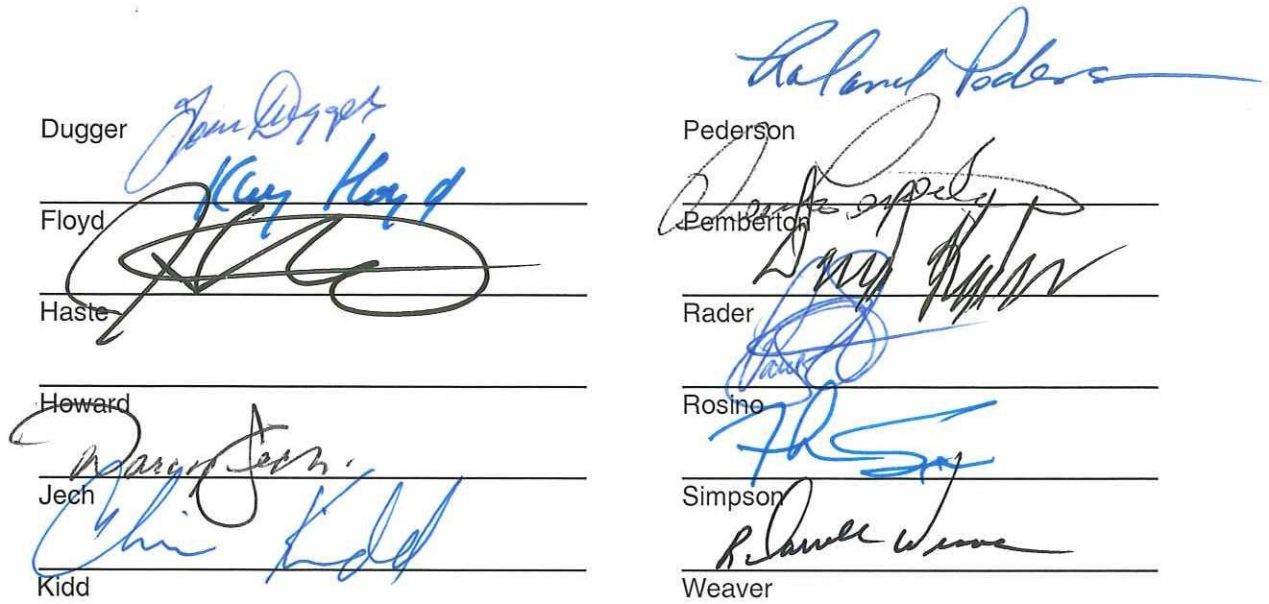 Tom Dugger
Dugger
Kay Floyd
Floyd
Haste
Howard
Darcy Jech
Jech
Chris Kidd
Kidd
Roland Pederson
Pederson
Pemberton
Dave Rader
Rader
Paul
Rosino
Simpson
R. Darrell Weaver
Weaver